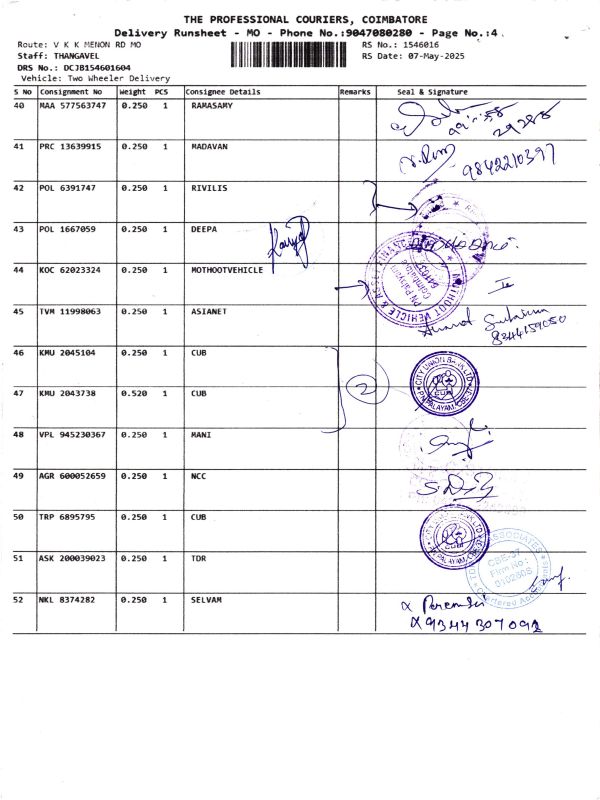 THE PROFESSIONAL COURIERS, COIMBATORE
Delivery Runsheet - MO - Phone No.:9047080280 - Page No.:4
Route: V K K MENON RD MO RS No.: 1546016
Staff: THANGAVEL RS Date: 07-May-2025
DRS No.: DCJB154601604
Vehicle: Two Wheeler Delivery
S No Consignment No Weight PCS Consignee Details Remarks Seal & Signature
40 MAA 577563747 0.250 1 RAMASAMY
41 PRC 13639915 0.250 1 MADAVAN
9842210397
42 POL 6391747 0.250 1 RIVILIS
43 POL 1667059 0.250 1 DEEPA
44 KOC 62023324 0.250 1 MOTHOOTVEHICLE
PN Palayam
Coimbatore
641 037
45 TVM 11998063 0.250 1 ASIANET
8344159050
46 KMU 2045104 0.250 1 CUB
CITY UNION BANK LTD
CUB
P.N.PALAYAM, CBE-37
47 KMU 2043738 0.520 1 CUB
2
48 VPL 945230367 0.250 1 MANI
49 AGR 600052659 0.250 1 NCC
50 TRP 6895795 0.250 1 CUB
CUB
51 ASK 200039023 0.250 1 TDR
ASSOCIATES
CBE-37
Firm No:
Chartered Accountants
52 NKL 8374282 0.250 1 SELVAM
9344307092